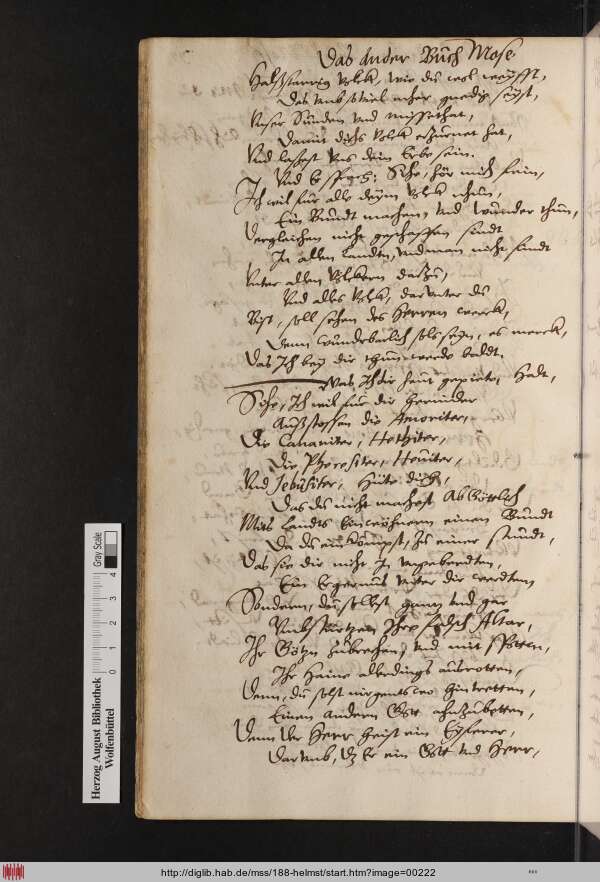 Das Ander Buch Mose.
Halßstarrig Volck, wie du wol weyßst,
Das umb soviel mher gnedig seyst,
Unser Sunden und missethat,
Damit dichs Volck erzurnet hat,
Und lassest uns dein Erbe sein.
Und Er sprach: Sihe, hör mich fein,
Ich wil für alle deym Volck nhun,
Ein Bundt machen, und wunder thun,
Dergleichen nicht geschaffen sindt
In allen Landen, undman nicht findt
Unter allen Völckern darzu,
Und alles Volck, darunter du
Bist, soll sehen des Herren werck,
Denn wunderbarlich sols seyn, es merck,
Das Ich bey dir thun werde baldt.
Was Ich dir heut gepiete, Halt,
Sihe, Ich wil für dir herunder
Außstossen die Amoriter,
Die Cananiter, Hethiter,
Die Pheresiter, Heuiter,
Und Jebusiter, Hüte dich,
Das du nicht machest Abgöttisch
Mit Landts Einwohnern einen Bundt
Da du einkömpst, zu einer stundt,
Das sie dir nicht In
Ein Ergernus unter dir werdten
Sonderen, du solst gantz und gar
Umbstürtzen Ihre Altar,
Ihr Götzn zubrechen, und mit spotten,
Ihr Haine allerdings ausrotten,
Denn, du solst nirgents wo hintretten,
Einen andern Gott ahnzubetten,
Denn Der Herr heist ein Eyferer,
Darumb, dz Er ein Gott und Herr,
Herzog August Bibliothek
Wolfenbüttel
0 1 2 3 4
Gray Scale
http://diglib.hab.de/mss/188-helmst/start.htm?image=00222